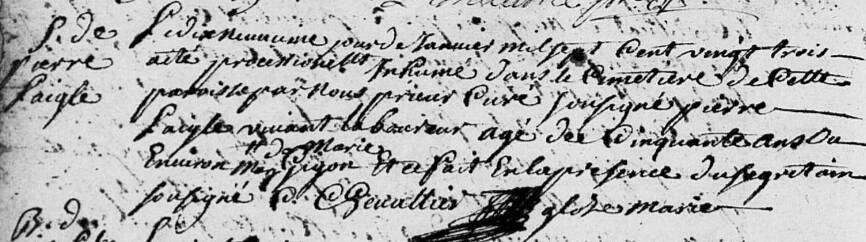 S. de
pierre
Laigle
Le dixneuviesme jour de Janvier mil sept Cent vingt trois
a eté processionell.t Inhumé dans le Cimetiere de Cette
paroisse par nous prieur Curé soussigné pierre
Laigle vivant laboureur agé de Cinquante ans ou
Environ m.ry de Marie Gigon Et ce fait En la presence du segretain
soussigné C. Chevallier
B. de